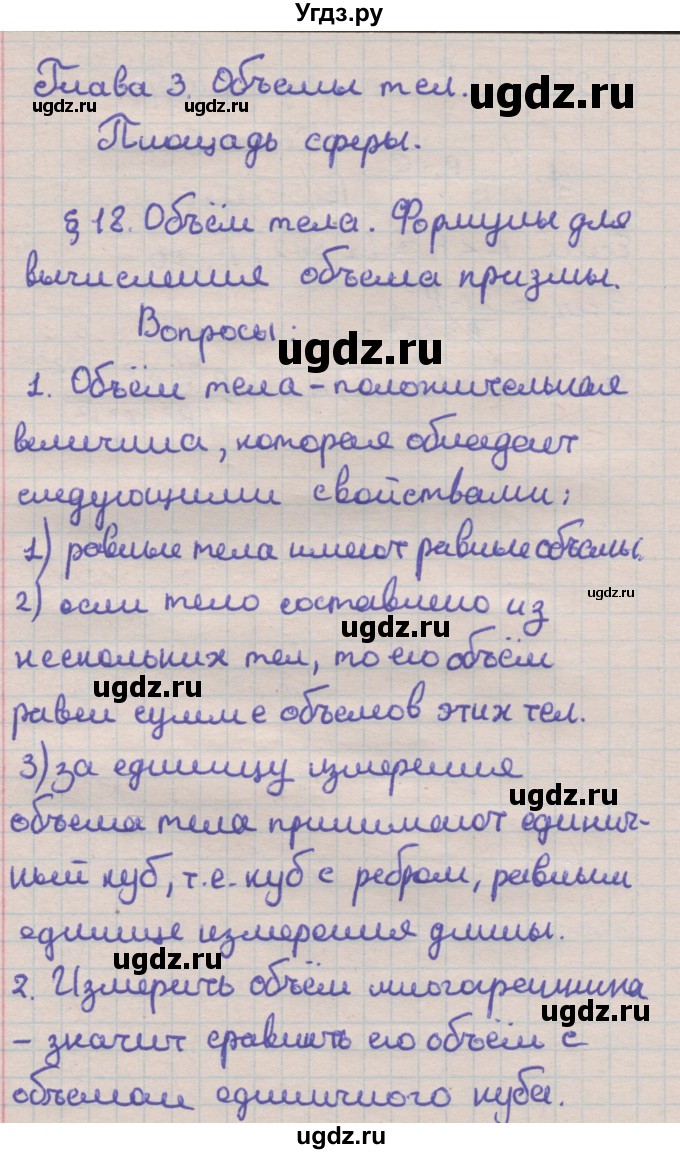 Угдз.ру
Глава 3. Объемы тел.
Площадь сферы.
§ 18. Объём тела. Формулы для
вычисления объема призмы.
Вопросы:
1. Объём тела – положительная
величина, которая обладает
следующими свойствами:
1) равные тела имеют равные объемы.
2) если тело составлено из
нескольких тел, то его объём
равен сумме объемов этих тел.
3) за единицу измерения
объема тела принимают единич-
ный куб, т.е. куб с ребром, равным
единице измерения длины.
2. Измерить объём многогранника
– значит сравнить его объём с
объемом единичного куба.
ugdz.ru
ugdz.ru
ugdz.ru
ugdz.ru
ugdz.ru
ugdz.ru
ugdz.ru
ugdz.ru
ugdz.ru
ugdz.ru
ugdz.ru